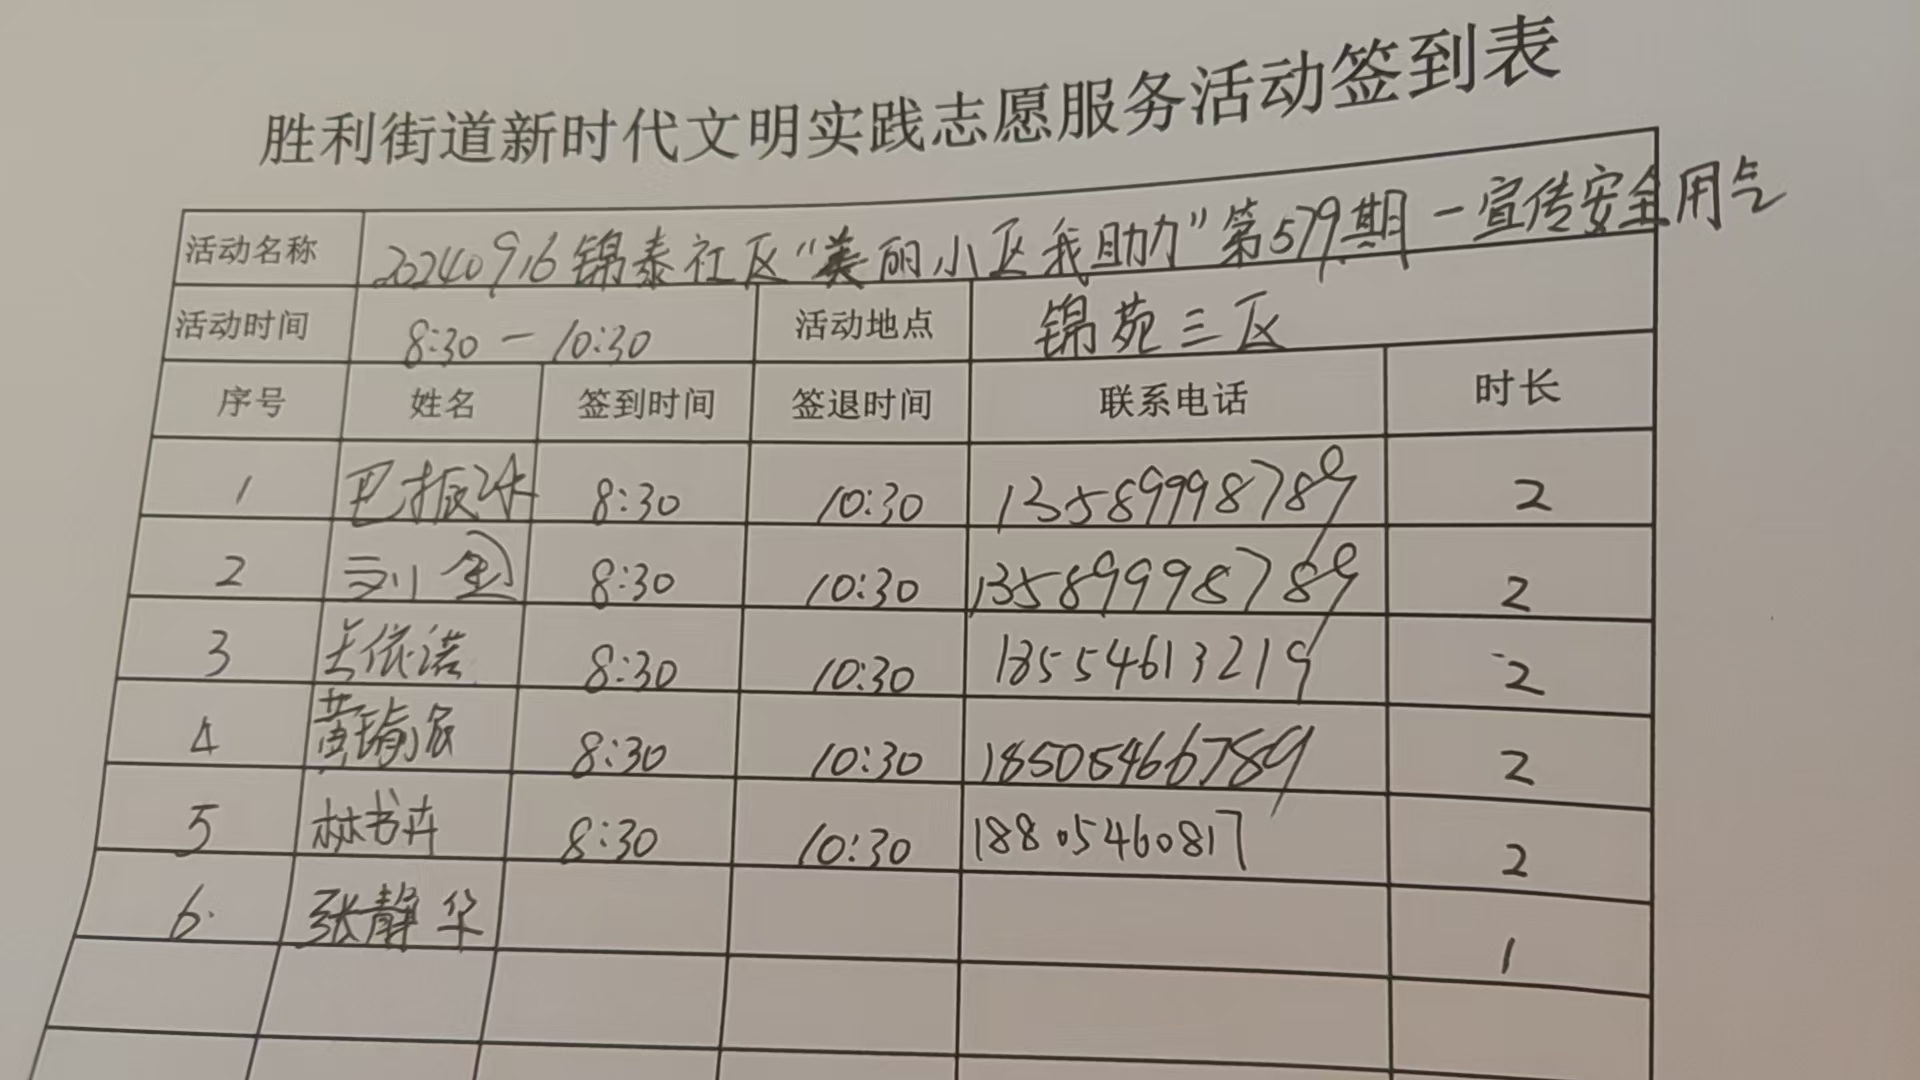 胜利街道新时代文明实践志愿服务活动签到表
活动名称 20240916锦泰社区“美丽小区我助力”第579期一宣传安全用气
活动时间 8:30一10:30 活动地点 锦苑三区
序号 姓名 签到时间 签退时间 联系电话 时长
1 巴振冰 8:30 10:30 13589998789 2
2 刘 8:30 10:30 13589998789 2
3 王依诺 8:30 10:30 18554613219 2
4 黄瑜宸 8:30 10:30 18505466789 2
5 林书卉 8:30 10:30 18805460817 2
6. 张静华 1